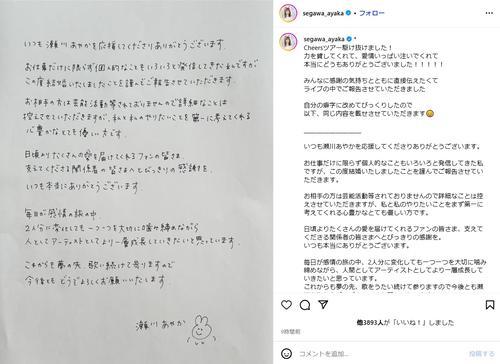 いつも瀬川あやかを応援してくださりありがとうございます。
お仕事だけに限らず個人的なこともいろいろと発信してきた私ですが
この度結婚いたしましたことを謹んでご報告させていただきます。
お相手の方は芸能活動等されておりませんので詳細なことは
控えさせていただきますが、私と私のやりたいことを第一に考えてくれる
心豊かなとても優しい方です。
日頃よりたくさんの愛を届けてくれるファンの皆さま
支えてくださる関係者の皆さまへとびっきりの感謝を。
いつも本当にありがとうございます。
毎日が感情の旅の中、
2人分に変化しても一つ一つを大切に噛み締めながら
人としてアーティストとしてより一層成長していきたいと思っています。
これからも夢の先、歌い続けて参りますので
今後ともどうぞよろしくお願いいたします。
瀬川あやか
segawa_ayaka • フォロー
segawa_ayaka
Cheersツアー駆け抜けました！
力を貸してくれて、愛情いっぱい注いでくれて
本当にどうもありがとうございました！！！！！
みんなに感謝の気持ちとともに直接伝えたくて
ライブの中でご報告させていただきました
自分の癖字に改めてびっくりしたので
以下、同じ内容を載せさせていただきます
いつも瀬川あやかを応援してくださりありがとうございます。
お仕事だけに限らず個人的なこともいろいろと発信してきた私
ですが、この度結婚いたしましたことを謹んでご報告させていた
だきます。
お相手の方は芸能活動等されておりませんので詳細なことは控
えさせていただきますが、私と私のやりたいことをまず第一に
考えてくれる心豊かなとても優しい方です。
日頃よりたくさんの愛を届けてくれるファンの皆さま、支えて
くださる関係者の皆さまへとびっきりの感謝を。
いつも本当にありがとうございます。
毎日が感情の旅の中、2人分に変化しても一つ一つを大切に噛み
締めながら、人間としてアーティストとしてより一層成長して
いきたいと思っています。
これからも夢の先、歌をうたい続けて参りますので今後とも瀬
他3893人が「いいね！」しました
9時間前
コメントを追加...
投稿する